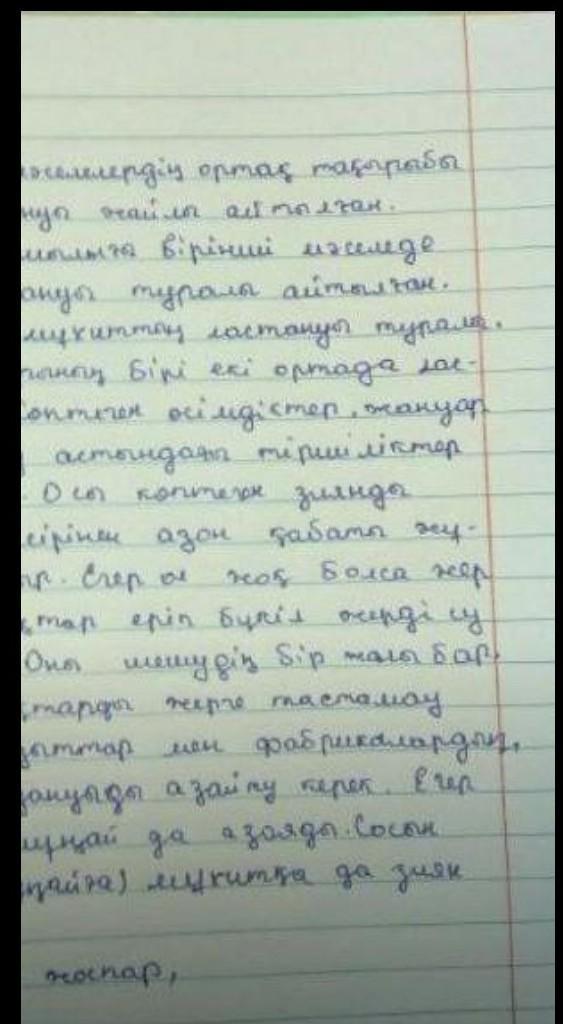 әселелердің ортақ тақырыбы
нуы жайлы айтылған.
мылыға бірінші мәселеде
ануы туралы айтылған.
мұхиттың ластануы туралы.
ының бірі екі ортада лас-
көптеген өсімдіктер, жануар
астындағы тіршіліктер
. Осы көптеген зиянды
сірінен азон қабаты жұ-
ыр. Егер ол жоқ болса жер
қтар еріп бүкіл жерді су
Оны шешудің бір жолы бар,
қтарды жерге тастамау
ауыттар мен фабрикалардың,
дануыды азайту керек. Егер
мұнай да азаяды. Сосын
ңайға) мұхитқа да зиян
жоспар,